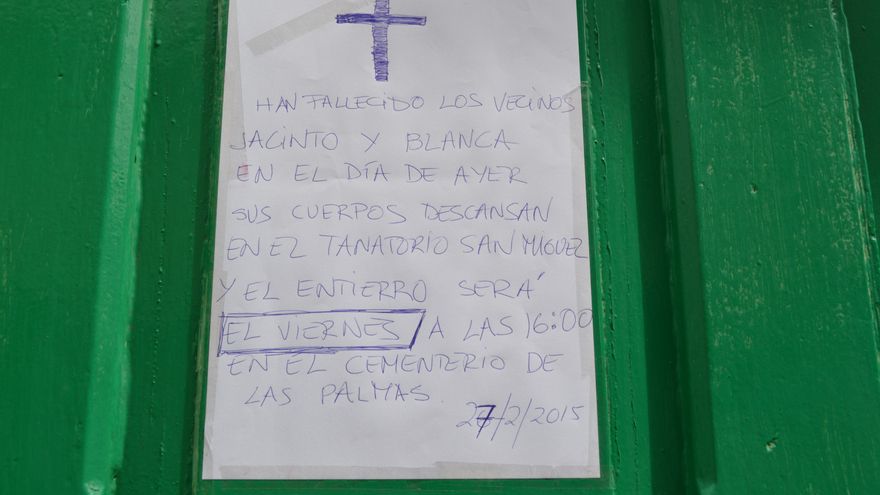 HAN FALLECIDO LOS VECINOS
JACINTO Y BLANCA
EN EL DÍA DE AYER
SUS CUERPOS DESCANSAN
EN EL TANATORIO SAN MIGUEL
Y EL ENTIERRO SERÁ
EL VIERNES A LAS 16:00
EN EL CEMENTERIO DE
LAS PALMAS.
27/2/2015